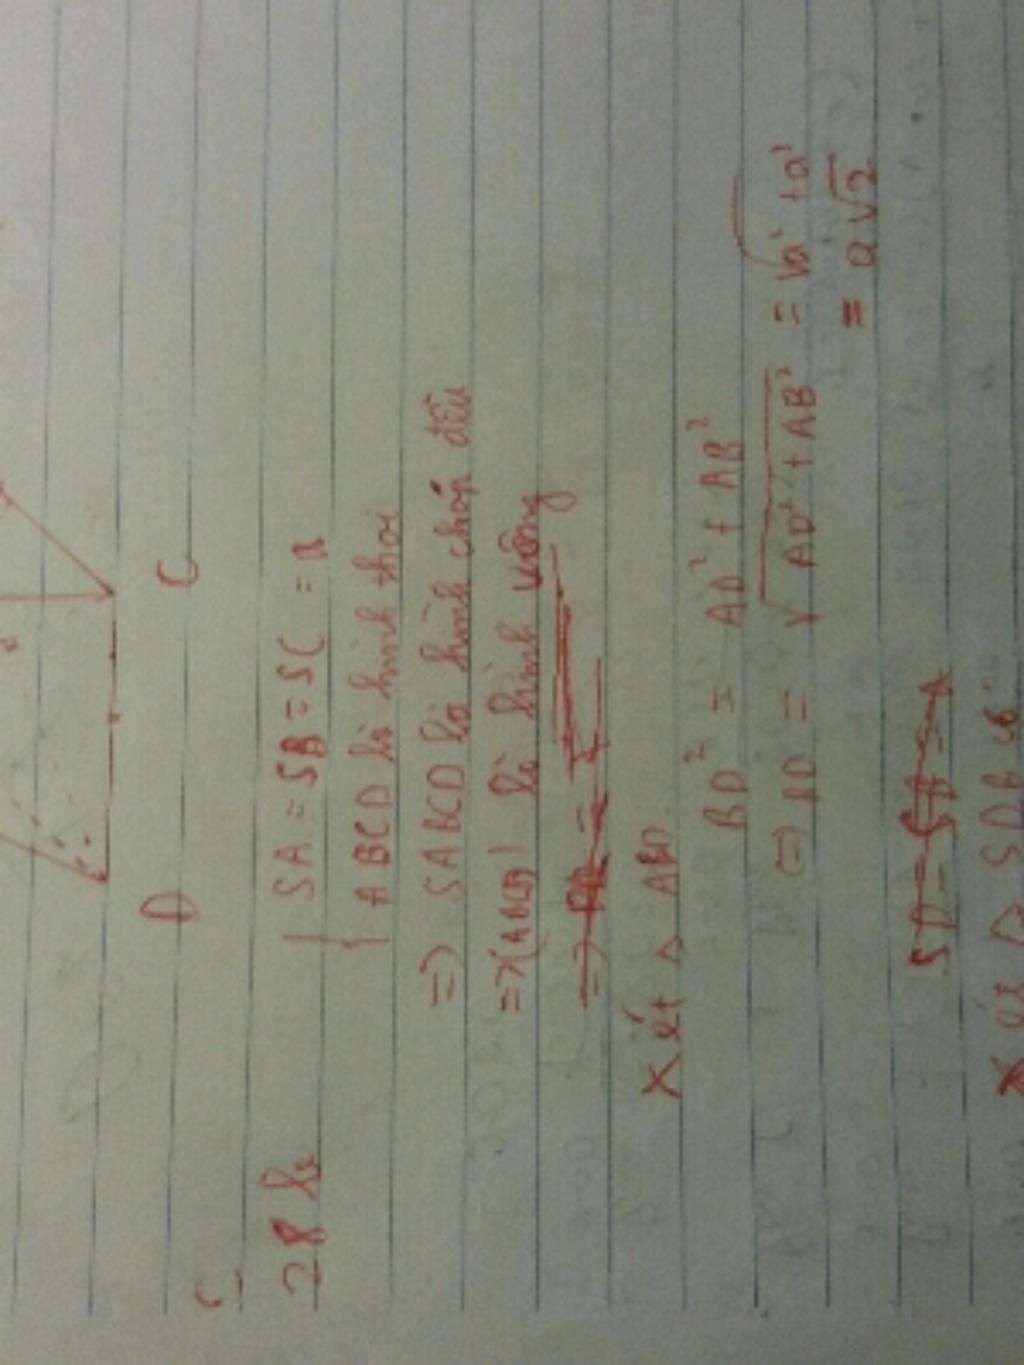 D C
SA = SB = SC = a
ABCD là hình thoi
=> SABCD là hình chóp đều
=> (ABCD) là hình vuông
Xét △ ABD
BD² = AD² + AB²
BD = √AD² + AB² = √a² + a²
= a√2
SD = SB = a
Xét △ SDB